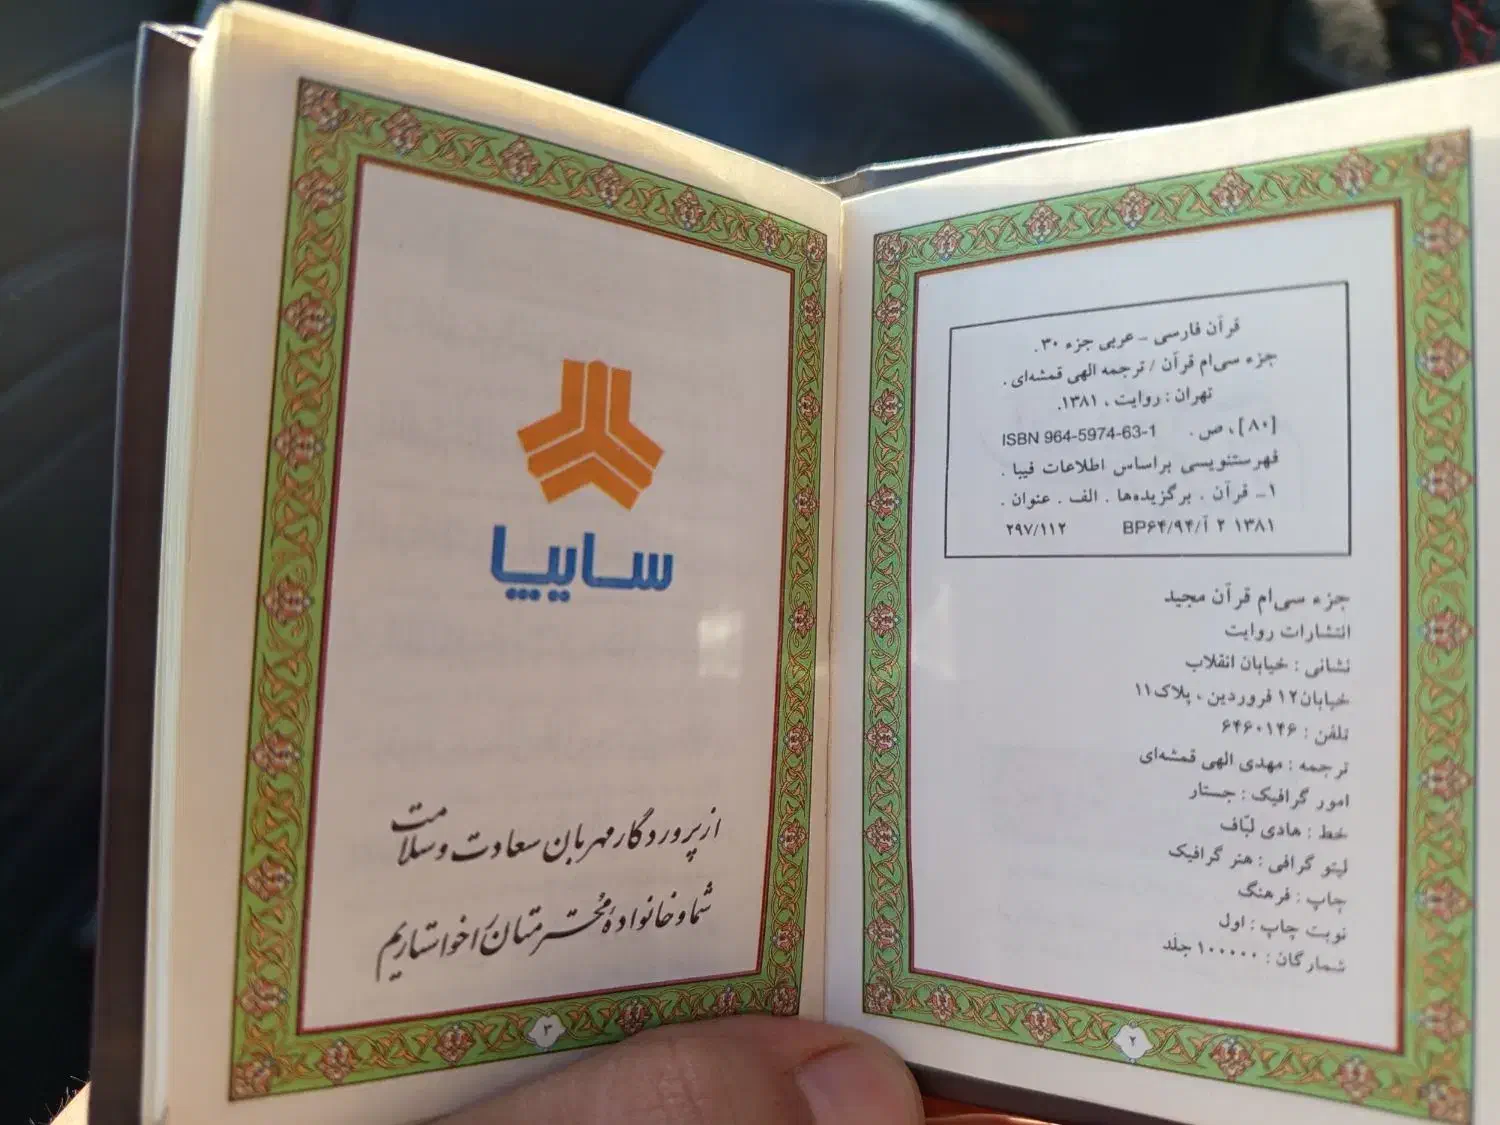 قرآن فارسی ـ عربی جزء ۳۰.
جزء سی‌ام قرآن / ترجمه الهی قمشه‌ای.
تهران: روایت، ۱۳۸۱.
[۸۰]، ص. ISBN 964-5974-63-1
فهرستنویسی براساس اطلاعات فیپا.
۱ـ قرآن. برگزیده‌ها. الف. عنوان.
۱۳۸۱ ۲ آ/۹۴/BP۶۴ ۲۹۷/۱۱۲
جزء سی‌ام قرآن مجید
انتشارات روایت
نشانی: خیابان انقلاب
خیابان۱۲ فروردین، پلاک۱۱
تلفن: ۶۴۶۰۱۴۶
ترجمه: مهدی الهی قمشه‌ای
امور گرافیک: جستار
خط: هادی لبّاف
لیتو گرافی: هنر گرافیک
چاپ: فرهنگ
نوبت چاپ: اول
شمارگان: ۱۰۰۰۰۰ جلد
۲
سایپا
از پروردگار مهربان سعادت و سلامت
شما و خانوادهٔ محترمتان را خواستاریم
۳